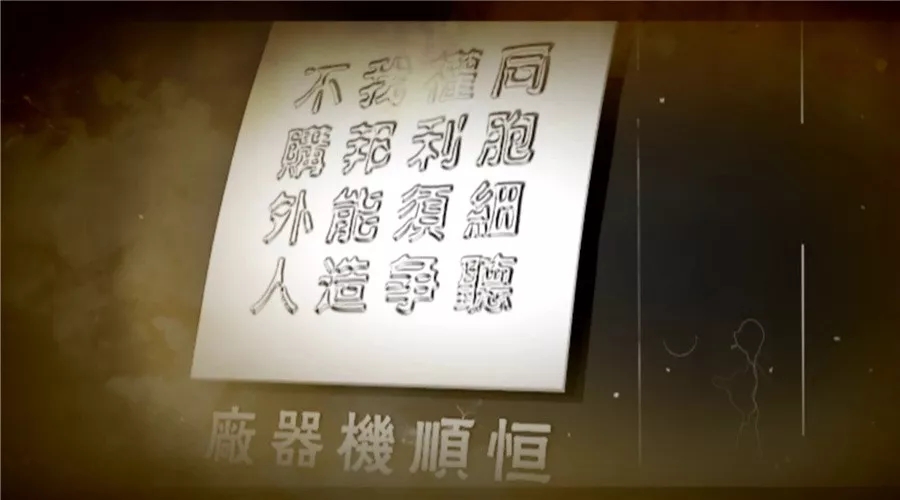 同胞細聽
權利須爭
我邦能造
不購外人
恒順機器廠